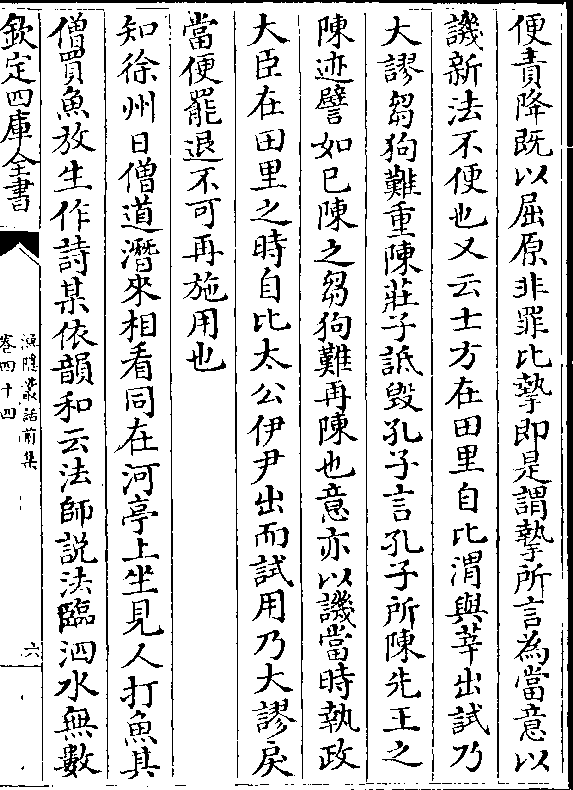 便責降既以屈原非罪比摯即是謂摯所言為當意以
譏新法不便也又云士方在田里自比渭與莘出試乃
大謬芻狗難重陳莊子詆毁孔子言孔子所陳先王之
陳迹譬如已陳之芻狗難再陳也意亦以譏當時執政
大臣在田里之時自比太公伊尹出而試用乃大謬戾
當便罷退不可再施用也
知徐州日僧道潛來相看同在河亭上坐見人打魚其
僧買魚放生作詩某依韻和云法師説法臨泗水無數
欽定四庫全書
漁隱叢話前集
卷四十四
六